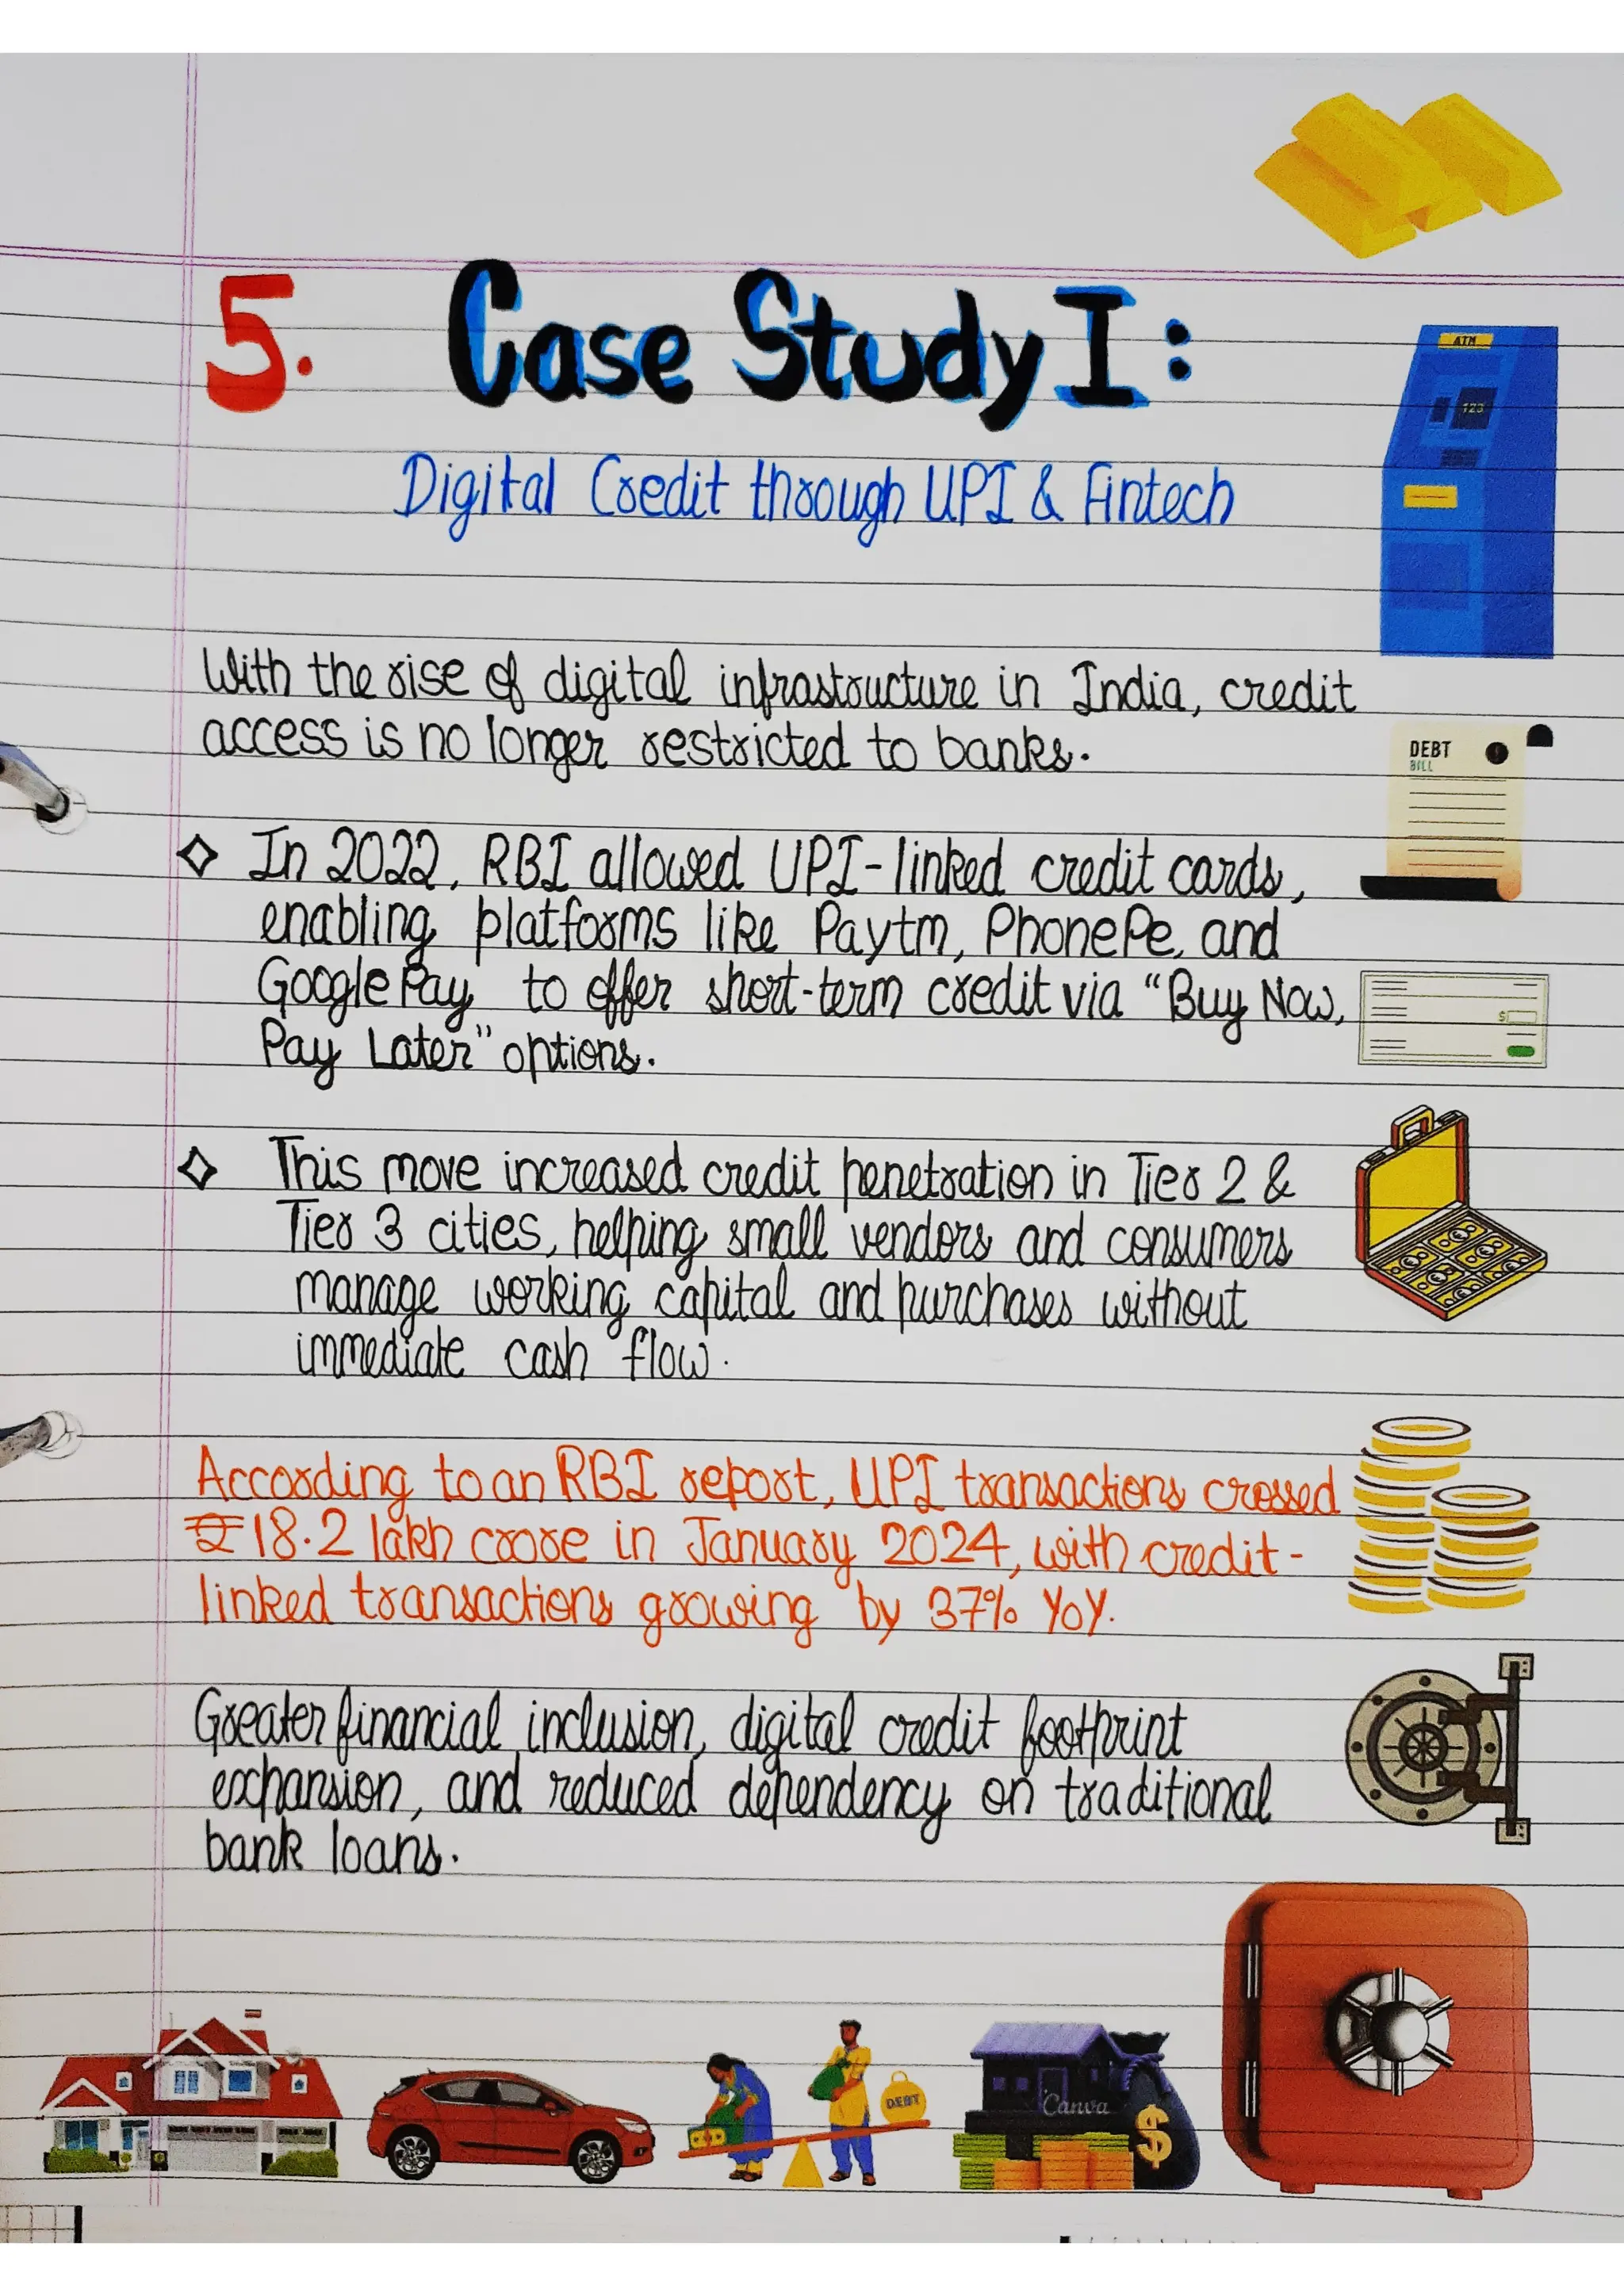 5. Case Study I:
Digital Credit through UPI & Fintech
ATM
123
With the rise of digital infrastructure in India, credit
access is no longer restricted to banks.
DEBT
BILL
In 2022, RBI allowed UPI-linked credit cards,
enabling platforms like Paytm, PhonePe, and
Google Pay to offer short-term credit via "Buy Now,
Pay Later" options.
$
This move increased credit penetration in Tier 2 &
Tier 3 cities, helping small vendors and consumers
manage working capital and purchases without
immediate cash flow.
According to an RBI report, UPI transactions crossed
₹18.2 lakh crore in January 2024, with credit-
linked transactions growing by 37% YoY.
Greater financial inclusion, digital credit footprint
expansion, and reduced dependency on traditional
bank loans.
DEBT
Canva
$